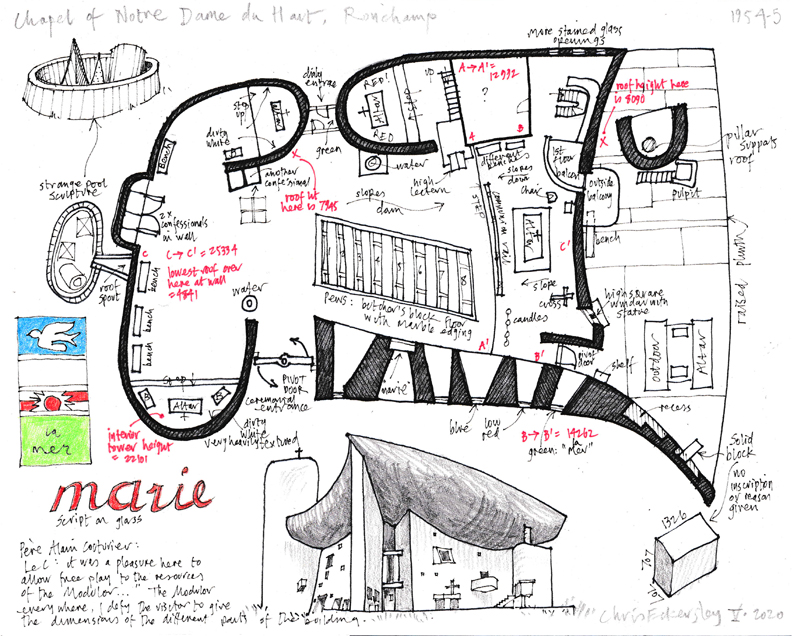 Chapel of Notre Dame du Haut, Ronchamp
1954-5
more stained glass
openings
strange pool
sculpture
roof
spout
bench
dirty
white
step
up
Altar
daily
entrance
green
RED!
Altar
RED
up
A → A' =
12992
?
A
B
roof height here
is 8090
X
pillar supports
roof
pulpit
1st floor
balcony
outside
balcony
bench
water
high
lectern
different
slopes
down
chair
steps
communion rail
another
confessional
X
roof ht
here is 7345
slopes
down
2x
confessionals
in wall
C
C → C' = 25334
lowest roof over
here at wall
= 4841
bench
bench
bench
water
Pews: butcher's block floor
with marble edging
Altar
C'
slope
cross
candles
high square
window with
statue
raised plinth
A'
B'
pivot
door
shelf
outdoor
Altar
recess
PIVOT
DOOR
ceremonial
entrance
"marie"
step
Altar
dirty
white
very heavily textured
interior
tower height
= 22101
blue
low
red
B → B' = 14262
green: "la
Mer"
solid
block
no
inscription
or reason
given
1326
707
la
mer
marie
script on glass
Père Alain Couturier:
Le C: it was a pleasure here to
allow free play to the resources
of the Modulor..." The Modulor
everywhere, I defy the visitor to give
the dimensions of the different parts of the building.
Chris Eckersley V. 2020